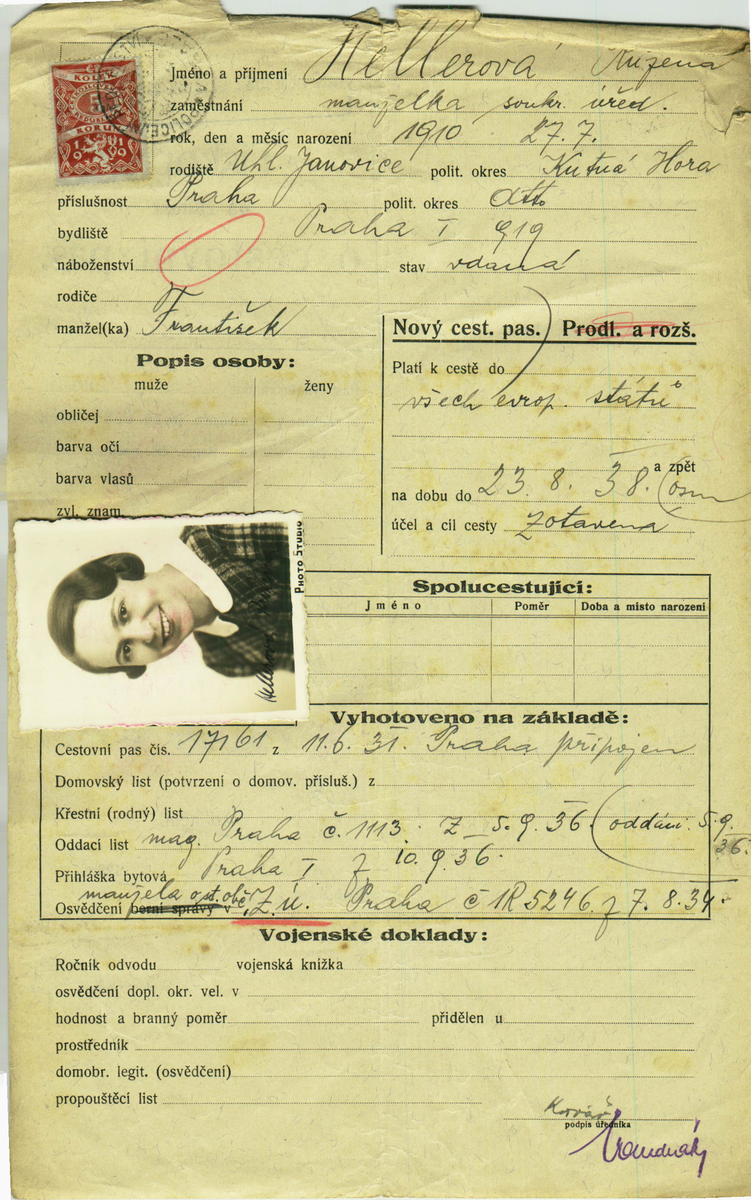 KOLEK
5
KORUN
1919
Jméno a příjmení Hellerova Růžena
zaměstnání manželka soukr. úřed.
rok, den a měsíc narození 1910 27.7.
rodiště Uhl. Janovice polit. okres Kutná Hora
příslušnost Praha polit. okres dtto
bydliště Praha I 919
náboženství stav vdaná
rodiče
manžel(ka) František
Nový cest. pas. Prodl. a rozš.
Popis osoby:
muže ženy
Platí k cestě do
všech evrop. států
obličej
barva očí
barva vlasů
a zpět
na dobu do 23. 8. 38. (osm
zvl. znam.
účel a cíl cesty zotavená
PHOTO STUDIO
Hellerova
Spolucestující:
Jméno Poměr Doba a místo narození
Vyhotoveno na základě:
Cestovní pas čís. 17161 z 11.6.31. Praha připojen
Domovský list (potvrzení o domov. přísluš.) z
Křestní (rodný) list
Oddací list mag. Praha č. 1113. z 5.9.36. (oddáni 5.9.
36.
Přihláška bytová Praha I z 10.9.36.
manžela ost. obč.
Osvědčení berní správy v "Z.ú. Praha č 1R5246 z 7.8.34.
Vojenské doklady:
Ročník odvodu vojenská knížka
osvědčení dopl. okr. vel. v
hodnost a branný poměr přidělen u
prostředník
domobr. legit. (osvědčení)
propouštěcí list
Kovář
podpis úředníka